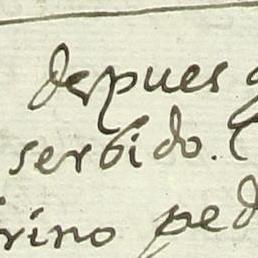 despues
serbido.
rino ped